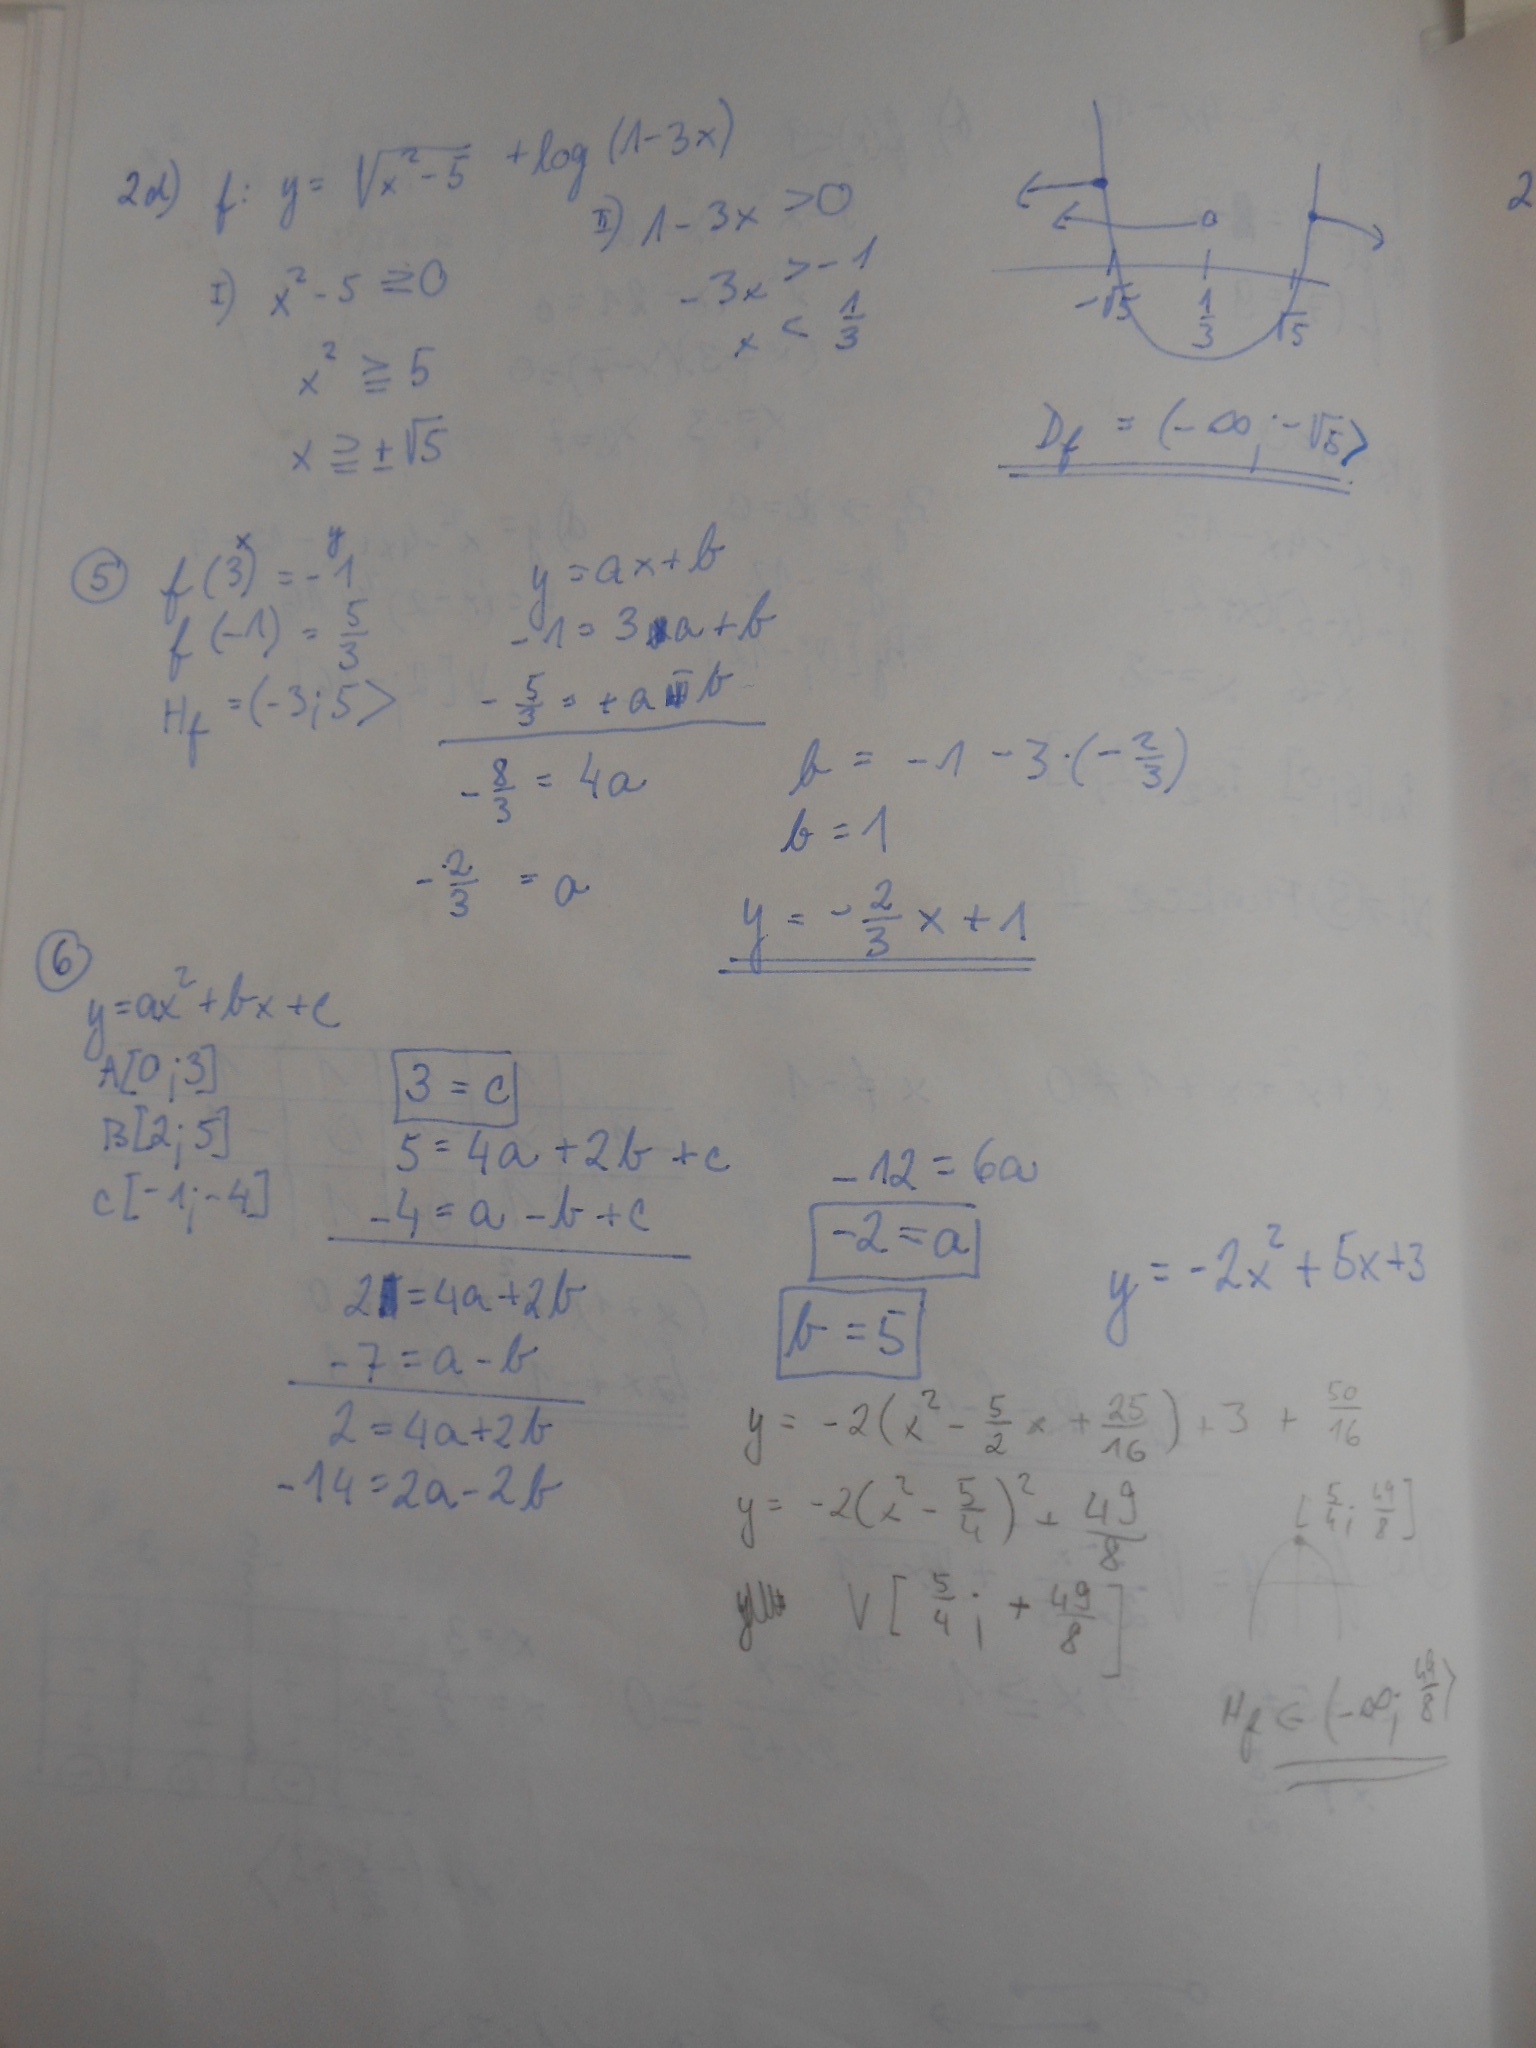 2d) f: y = √(x² - 5) + log (1 - 3x)
I) x² - 5 ≧ 0
x² ≧ 5
x ≧ ± √5
II) 1 - 3x > 0
- 3x > - 1
x < 1/3
-√5 1/3 √5
Df = (- ∞; -√5⟩
5 f(3) = -1
x y
f(-1) = 5/3
Hf = (-3; 5⟩
y = ax + b
-1 = 3a + b
- 5/3 = + a - b
- 8/3 = 4a
- 2/3 = a
b = -1 - 3 · (- 2/3)
b = 1
y = - 2/3 x + 1
6
y = ax² + bx + c
A[0; 3]
B[2; 5]
C[-1; -4]
3 = c
5 = 4a + 2b + c
-4 = a - b + c
2 = 4a + 2b
-7 = a - b
2 = 4a + 2b
-14 = 2a - 2b
-12 = 6a
-2 = a
b = 5
y = -2x² + 5x + 3
y = -2(x² - 5/2 x + 25/16) + 3 + 50/16
y = -2(x² - 5/4)² + 49/8
V[5/4; + 49/8]
[5/4; 49/8]
Hf ∈ (-∞; 49/8⟩
2